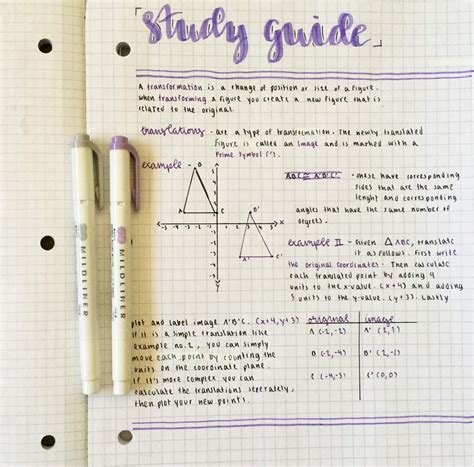 study guide
A transformation is a change of position or size of a figure.
when transforming a figure you create a new figure that is
related to the original.
translations - are a type of transformation. The newly translated
figure is called an Image and is marked with a
Prime Symbol (').
example
B
A
C
x
B'
A'
C'
ABC ≅ A'B'C' - these have corresponding
sides that are the same
lenght and corresponding
angles that have the same number of
degrees.
example II - Given △ABC, translate
it as follows. First write
the original coordinates. Then calculate
each translated point by adding 4
units to the x-value (x+4) and adding
3 units to the y-value. (y+3). Lastly
plot and label image A'B'C'. (x+4, y+3)
If it is a simple translation like
example no. 2, you can simply
move each point by counting the
units on the coordinate plane.
If it's more complex you can
calculate the translations seperately,
then plot your new points.
original | image
A (-2,-2) | A' (2,1)
B (-2,-4) | B' (2,-1)
C (-4,-3) | C' (0,0)
MILDLINER
MILDLINER